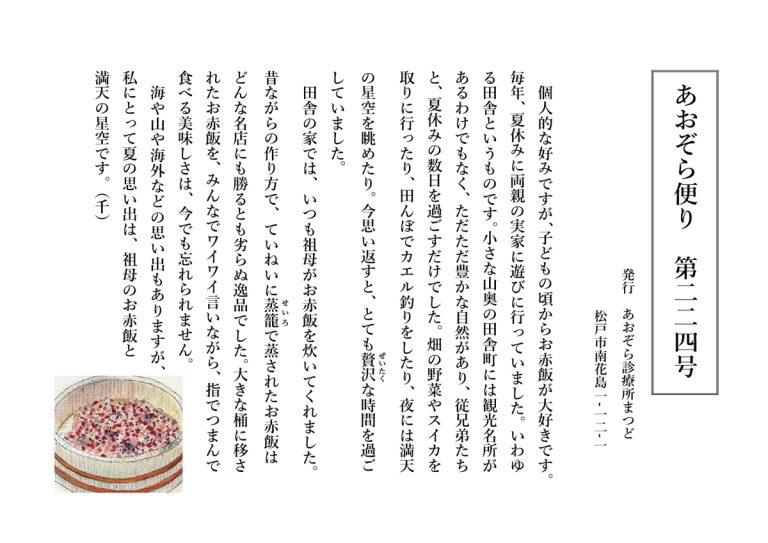 あおぞら便り　第二二四号
発行　あおぞら診療所まつど
松戸市南花島一-一二-一
個人的な好みですが、子どもの頃からお赤飯が大好きです。
毎年、夏休みに両親の実家に遊びに行っていました。いわゆ
る田舎というものです。小さな山奥の田舎町には観光名所が
あるわけでもなく、ただただ豊かな自然があり、従兄弟たち
と、夏休みの数日を過ごすだけでした。畑の野菜やスイカを
取りに行ったり、田んぼでカエル釣りをしたり、夜には満天
の星空を眺めたり。今思い返すと、とても贅沢な時間を過ご
ぜいたく
していました。
田舎の家では、いつも祖母がお赤飯を炊いてくれました。
昔ながらの作り方で、ていねいに蒸籠で蒸されたお赤飯は
せいろ
どんな名店にも勝るとも劣らぬ逸品でした。大きな桶に移さ
れたお赤飯を、みんなでワイワイ言いながら、指でつまんで
食べる美味しさは、今でも忘れられません。
海や山や海外などの思い出もありますが、
私にとって夏の思い出は、祖母のお赤飯と
満天の星空です。（千）